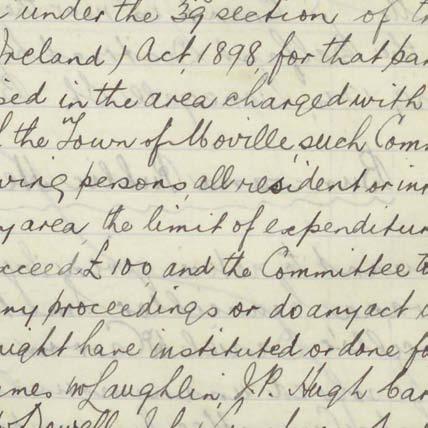 under the 39 section of t
Ireland) Act, 1898 for that par
sed in the area charged with
the Town of Moville, such Com
wing persons, all resident or in
y area, the limit of expenditur
xceed £100, and the Committee to
ny proceedings or do any act
ight have instituted or done fo
ames McLaughlin, J.P. Hugh Car